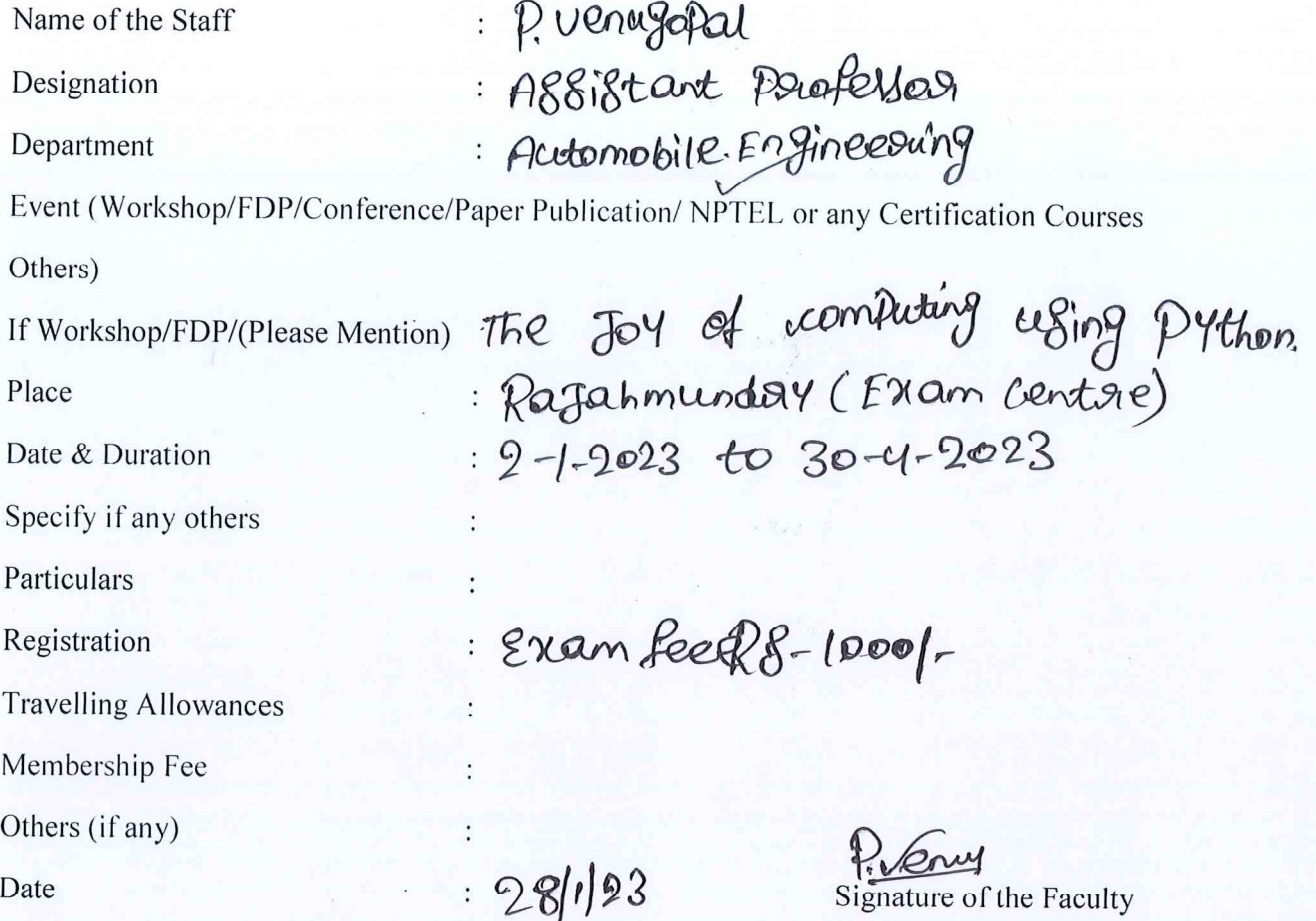 Name of the Staff : P. Venugopal
Designation : Assistant Professor
Department : Automobile. Engineering
Event (Workshop/FDP/Conference/Paper Publication/ NPTEL or any Certification Courses
Others)
If Workshop/FDP/(Please Mention) The Joy of computing using Python.
Place : Rajahmundry (Exam Centre)
Date & Duration : 2-1-2023 to 30-4-2023
Specify if any others :
Particulars :
Registration : Exam fee Rs-1000/-
Travelling Allowances :
Membership Fee :
Others (if any) :
P. Venu
Date : 28/1/23 Signature of the Faculty